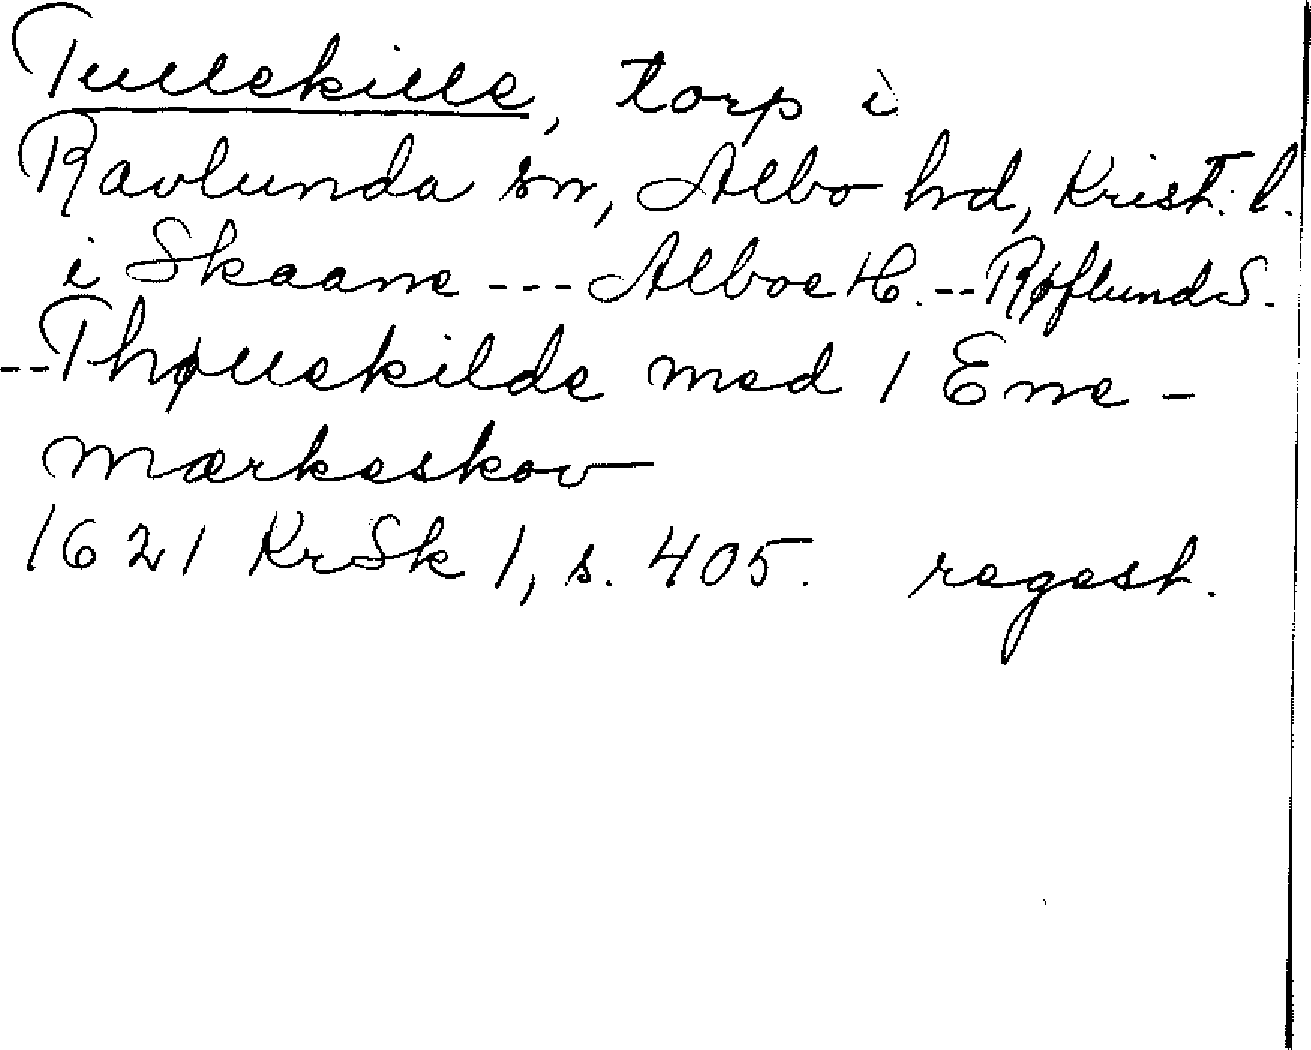 Tullekille, torp i
Ravlunda sn, Albo hd, Krist. l.
i Skaane --- Alboe H. -- Røflund S.
-- Thøllekilde med 1 Ene-
mærkeskov
1621 KrSk 1, s. 405. regest.